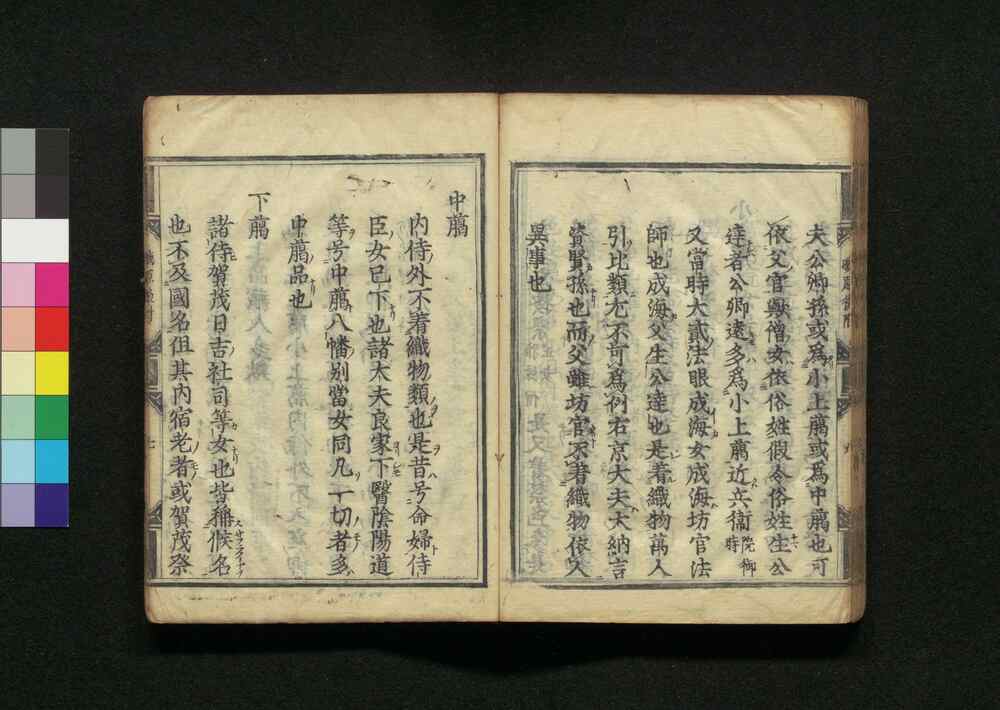 夫公卿孫或為小上﨟或為中﨟也可
依父官歟僧女依俗姓假令俗姓生公
達者公卿遠多為小上﨟近衛院御時
又當時大貳法眼成海女成海坊官法
師也成海父生公達也是着織物萬人
引比類尤不可為例右京大夫大納言
資賢孫也而父雖坊官不着織物依入
異事也
中﨟
内侍外不着織物類也是昔号命婦侍
臣女已下也諸大夫良家下醫陰陽道
等号中﨟八幡別當女同凡一切者多
中﨟品也
下﨟
諸侍賀茂日吉社司等女也皆稱候名
也不及國名但其内宿老者或賀茂祭